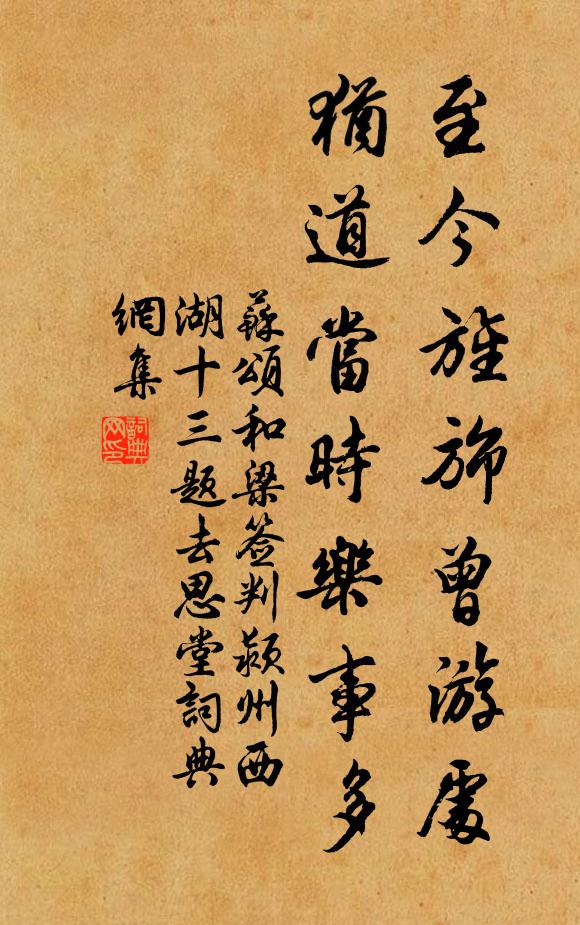 至今旌斾曾游處
猶道當時樂事多
蘇頌和梁签判潁州西
湖十三题去思堂詞典
網集
詞典网印